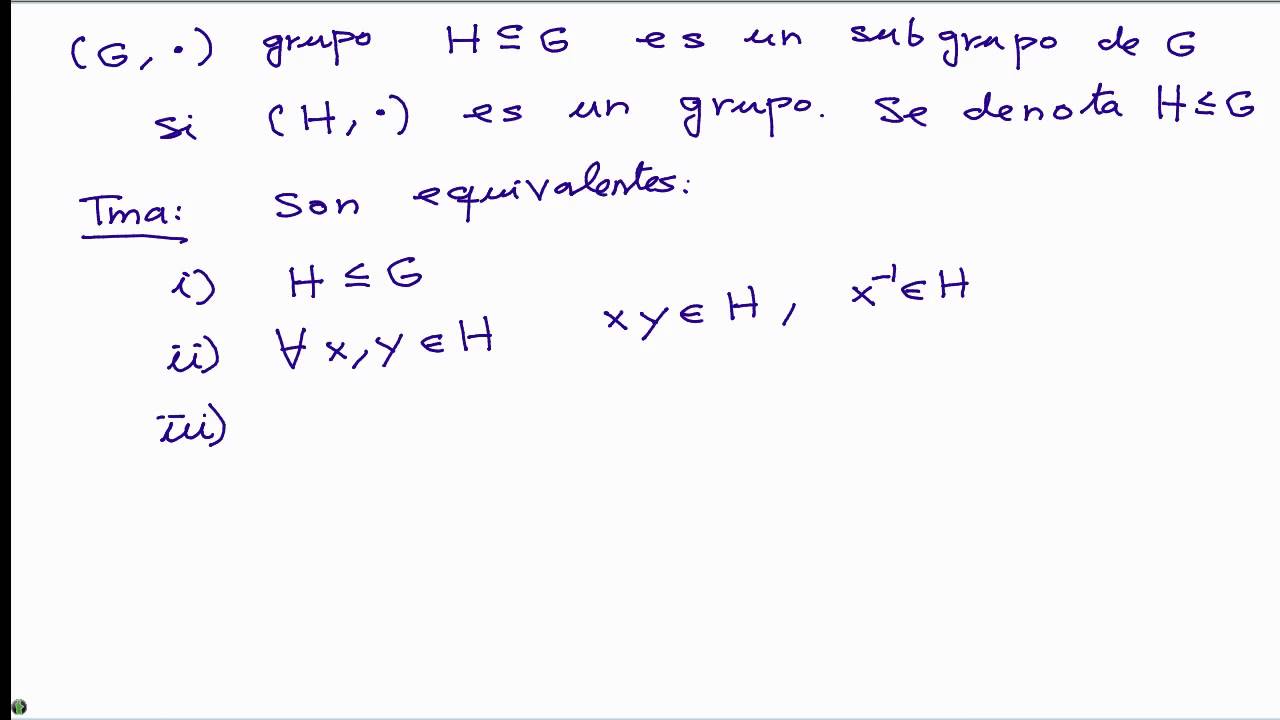 (G, ·) grupo H ⊆ G es un subgrupo de G
si (H, ·) es un grupo. Se denota H ≤ G
Tma: Son equivalentes:
i) H ≤ G
ii) ∀ x, y ∈ H xy ∈ H, x⁻¹ ∈ H
iii)